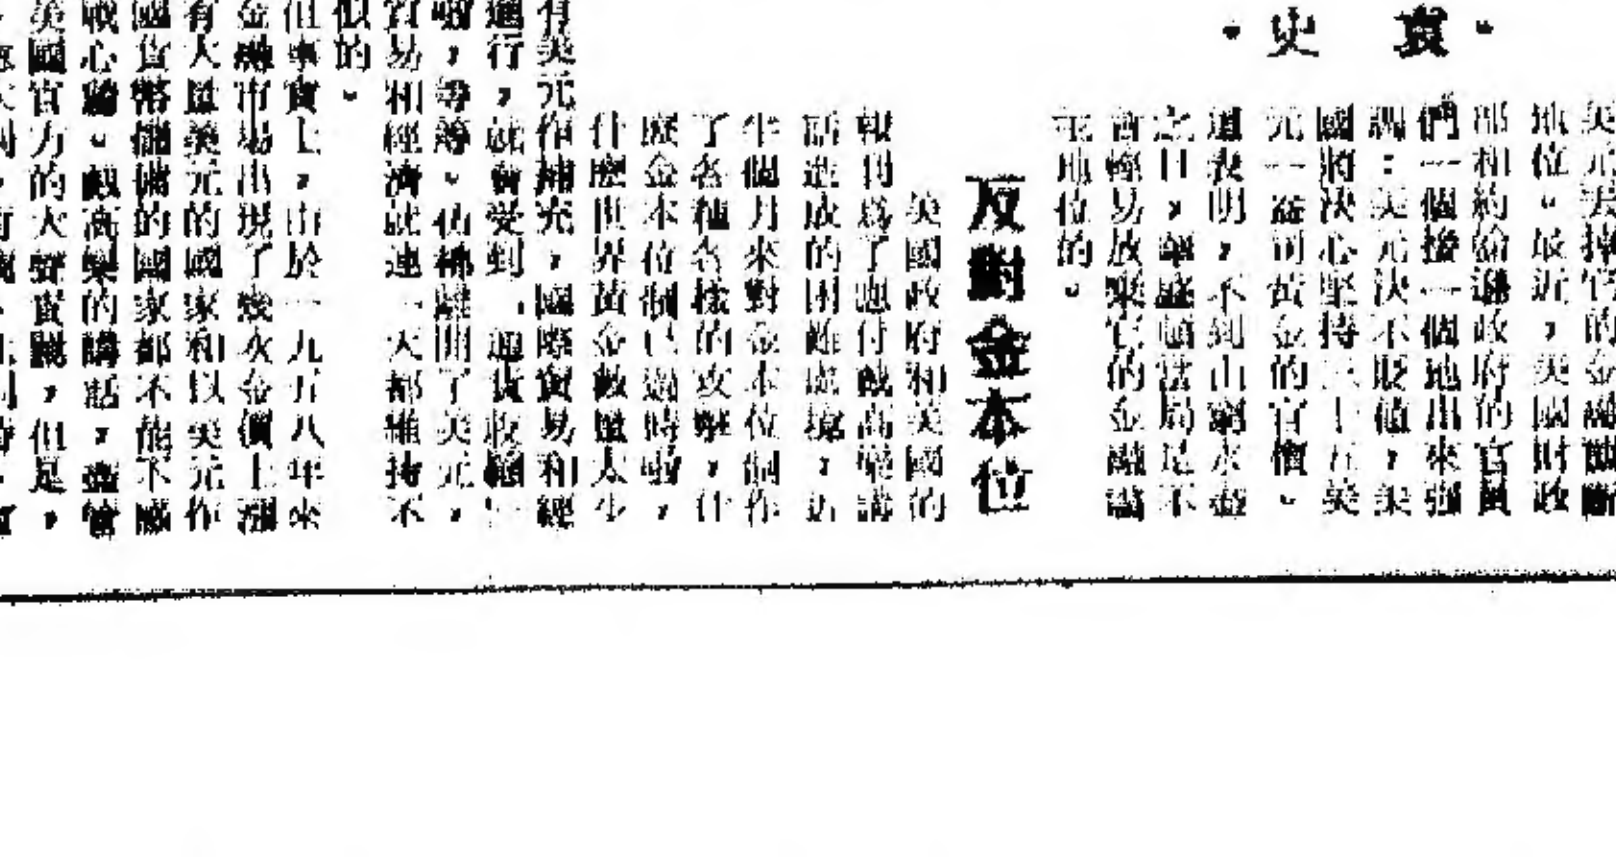 ·袁 史·
美元去掉它的金融壟斷
地位。最近,美國財政
部和約翰遜政府的官員
們一個接一個地出來强
調:美元決不貶值,美
國將決心堅持三十五美
元一盎司黃金的官價。
這表明,不到山窮水盡
之日,華盛頓當局是不
會輕易放棄它的金融霸
主地位的。
反對金本位
美國政府和美國的
報刊爲了應付戴高樂講
話造成的困難處境,近
半個月來對金本位制作
了各種各樣的攻擊,什
麽金本位制已過時啦,
什麽世界黃金數量太少
有美元作補充,國際貿易和經
進行,就會受到「通貨收縮」
啦,等等。彷彿離開了美元,
貿易和經濟就連一天都維持不
似的。
但事實上,由於一九五八年來
金融市場出現了幾次金價上漲
有大量美元的國家和以美元作
國貨幣儲備的國家都不能不感
戰心驚。戴高樂的講話,儘管
英國官方的大聲責難,但是,